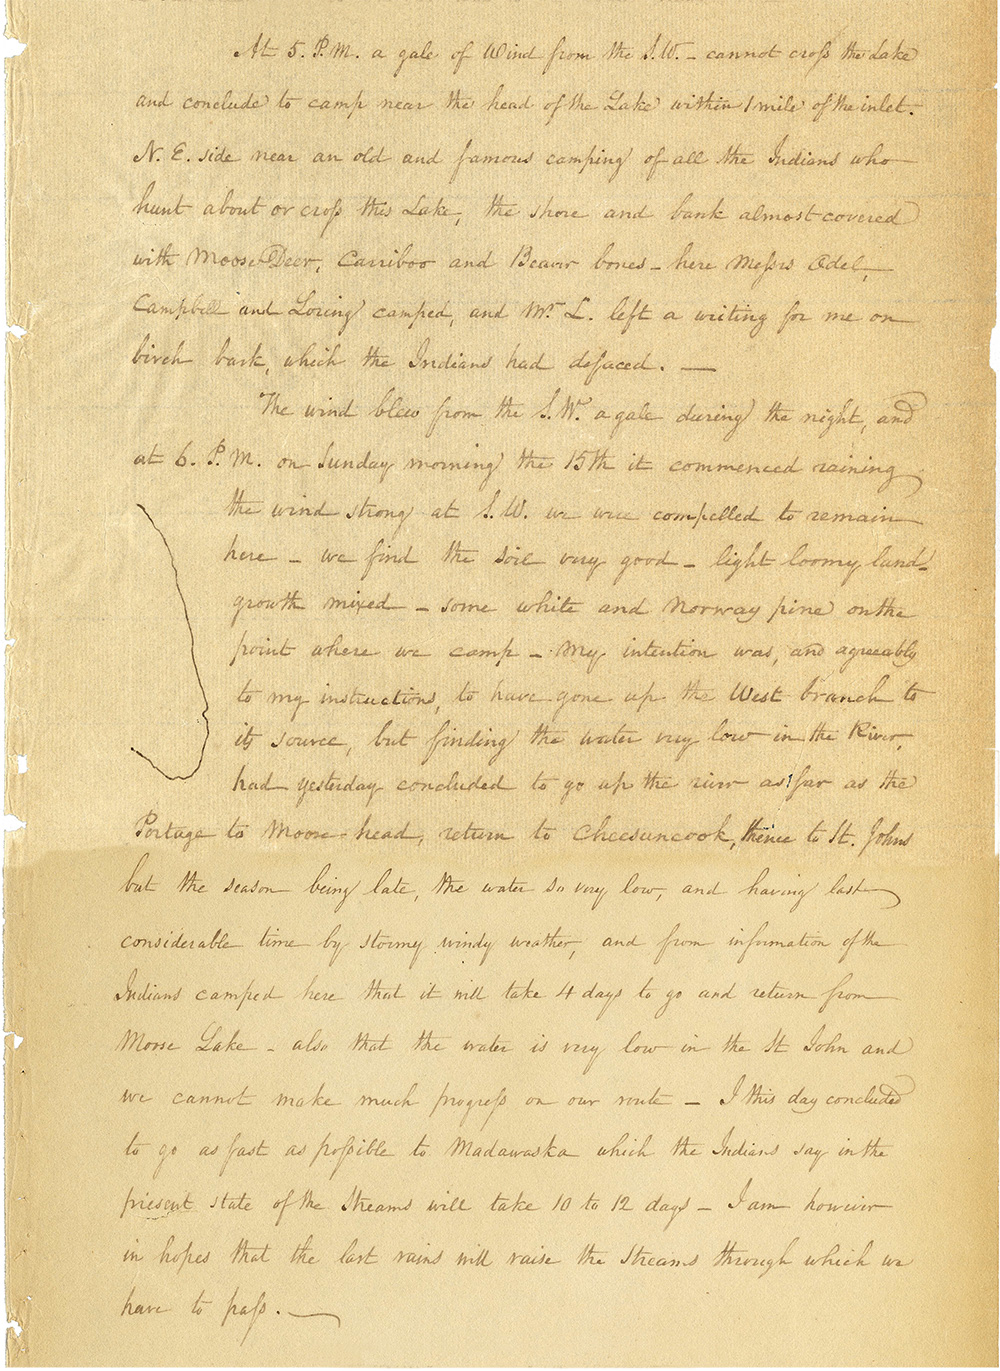 At 5. P.M. a gale of Wind from the S.W. – cannot cross the Lake
and conclude to camp near the head of the Lake within 1 mile of the inlet.
N. E. side near an old and famous camping of all the Indians who
hunt about or cross this Lake, the shore and bank almost covered
with Moose Deer, Carriboo and Beaver bones – here Messrs Odel,
Campbell and Loring camped, and Mr L. left a writing for me on
birch bark, which the Indians had defaced. —
The wind blew from the S.W. a gale during the night, and
at 6. P.M. on Sunday morning the 15th it commenced raining
the wind strong at S.W. we were compelled to remain
here – we find the soil very good – light loomy land –
growth mixed – some white and Norway pine on the
point where we camp – My intention was, and agreeably
to my instructions, to have gone up the West branch to
its source, but finding the water very low in the River,
had yesterday concluded to go up the river as far as the
Portage to Moose-head, return to Cheesuncook, thence to St. Johns
but the season being late, the water so very low, and having lost
considerable time by stormy windy weather, and from information of the
Indians camped here that it will take 4 days to go and return from
Moose Lake – also that the water is very low in the St John and
we cannot make much progress on our route – I this day concluded
to go as fast as possible to Madawaska which the Indians say in the
present state of the Streams will take 10 to 12 days – I am however
in hopes that the last rains will raise the Streams through which we
have to pass. —